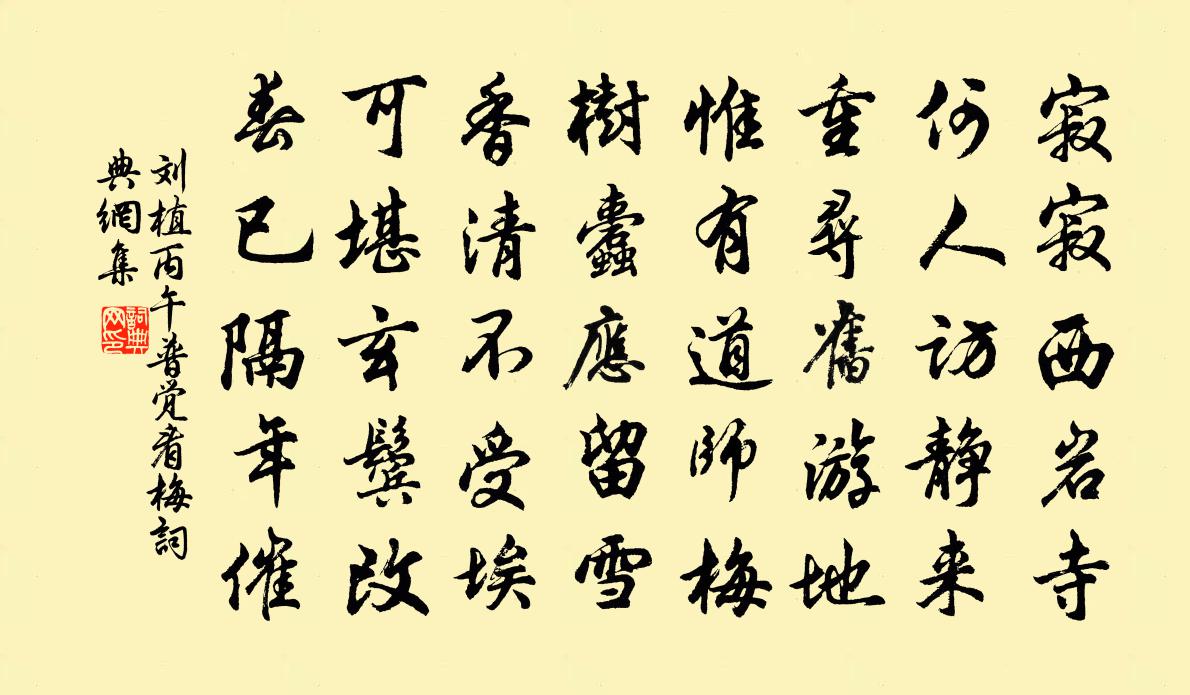 寂寂西岩寺
何人访静来
重尋舊游地
惟有道师梅
樹蠹應留雪
香清不受埃
可堪玄鬓改
春已隔年催
刘植丙午普觉看梅詞
典網集
詞典
网印